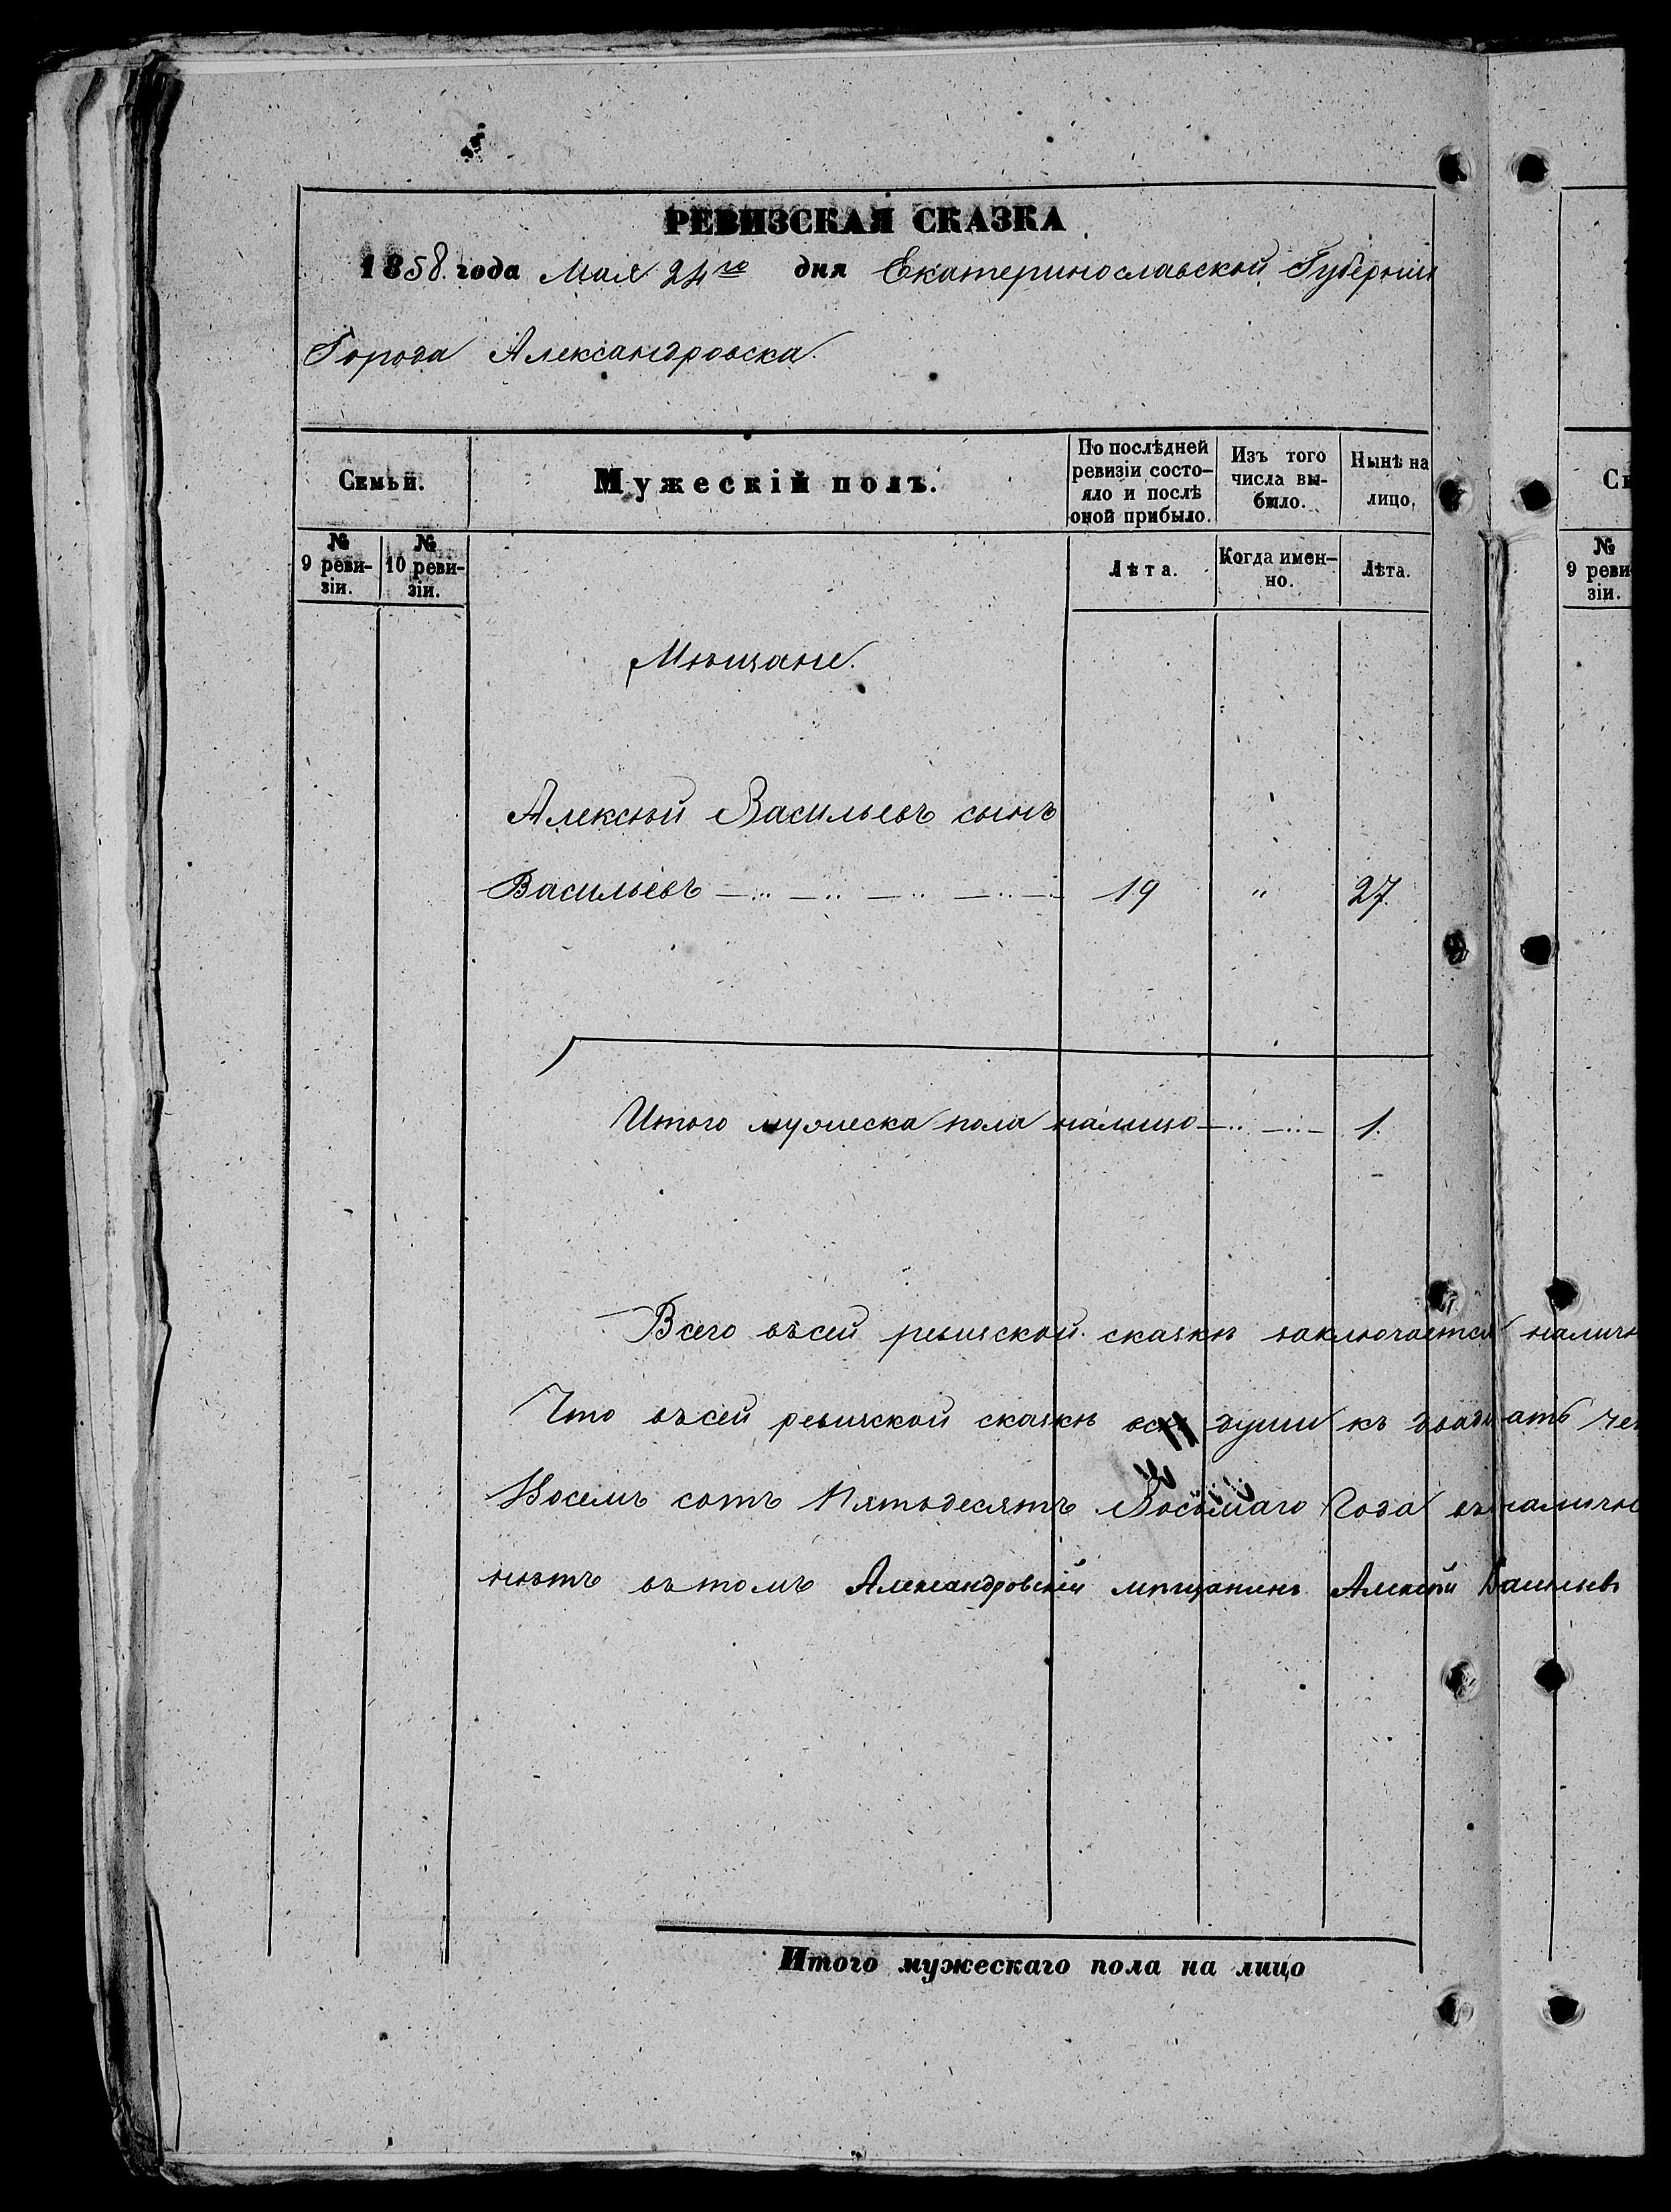 РЕВИЗСКАЯ СКАЗКА
1858. года Мая 24го дня Екатеринославской Губернии
Города Александровска.
Семьи.
Мужескій полъ.
По послѣдней
ревизіи состо-
яло и послѣ
оной прибыло.
Изъ того
числа вы-
было.
Нынѣ на
лицо.
№
9 реви-
зіи.
№
10 реви-
зіи.
Лѣта.
Когда имен-
но.
Лѣта.
№
9 реви
зіи.
Мѣщане.
Алексѣй Васильевъ сынъ
Васильевъ 19 " 27.
Итого мужеска пола налицо 1.
Всего въсей ревизской сказкѣ заключается налич
Что въсей ревизской сказкѣ всѣ души къ двадцать че
Восемъ сотъ Пятьдесятъ Восьмаго Года въ налично
нѣтъ вътомъ Александровскій мѣщанинъ Алексѣй Васильевъ
Итого мужескаго пола на лицо